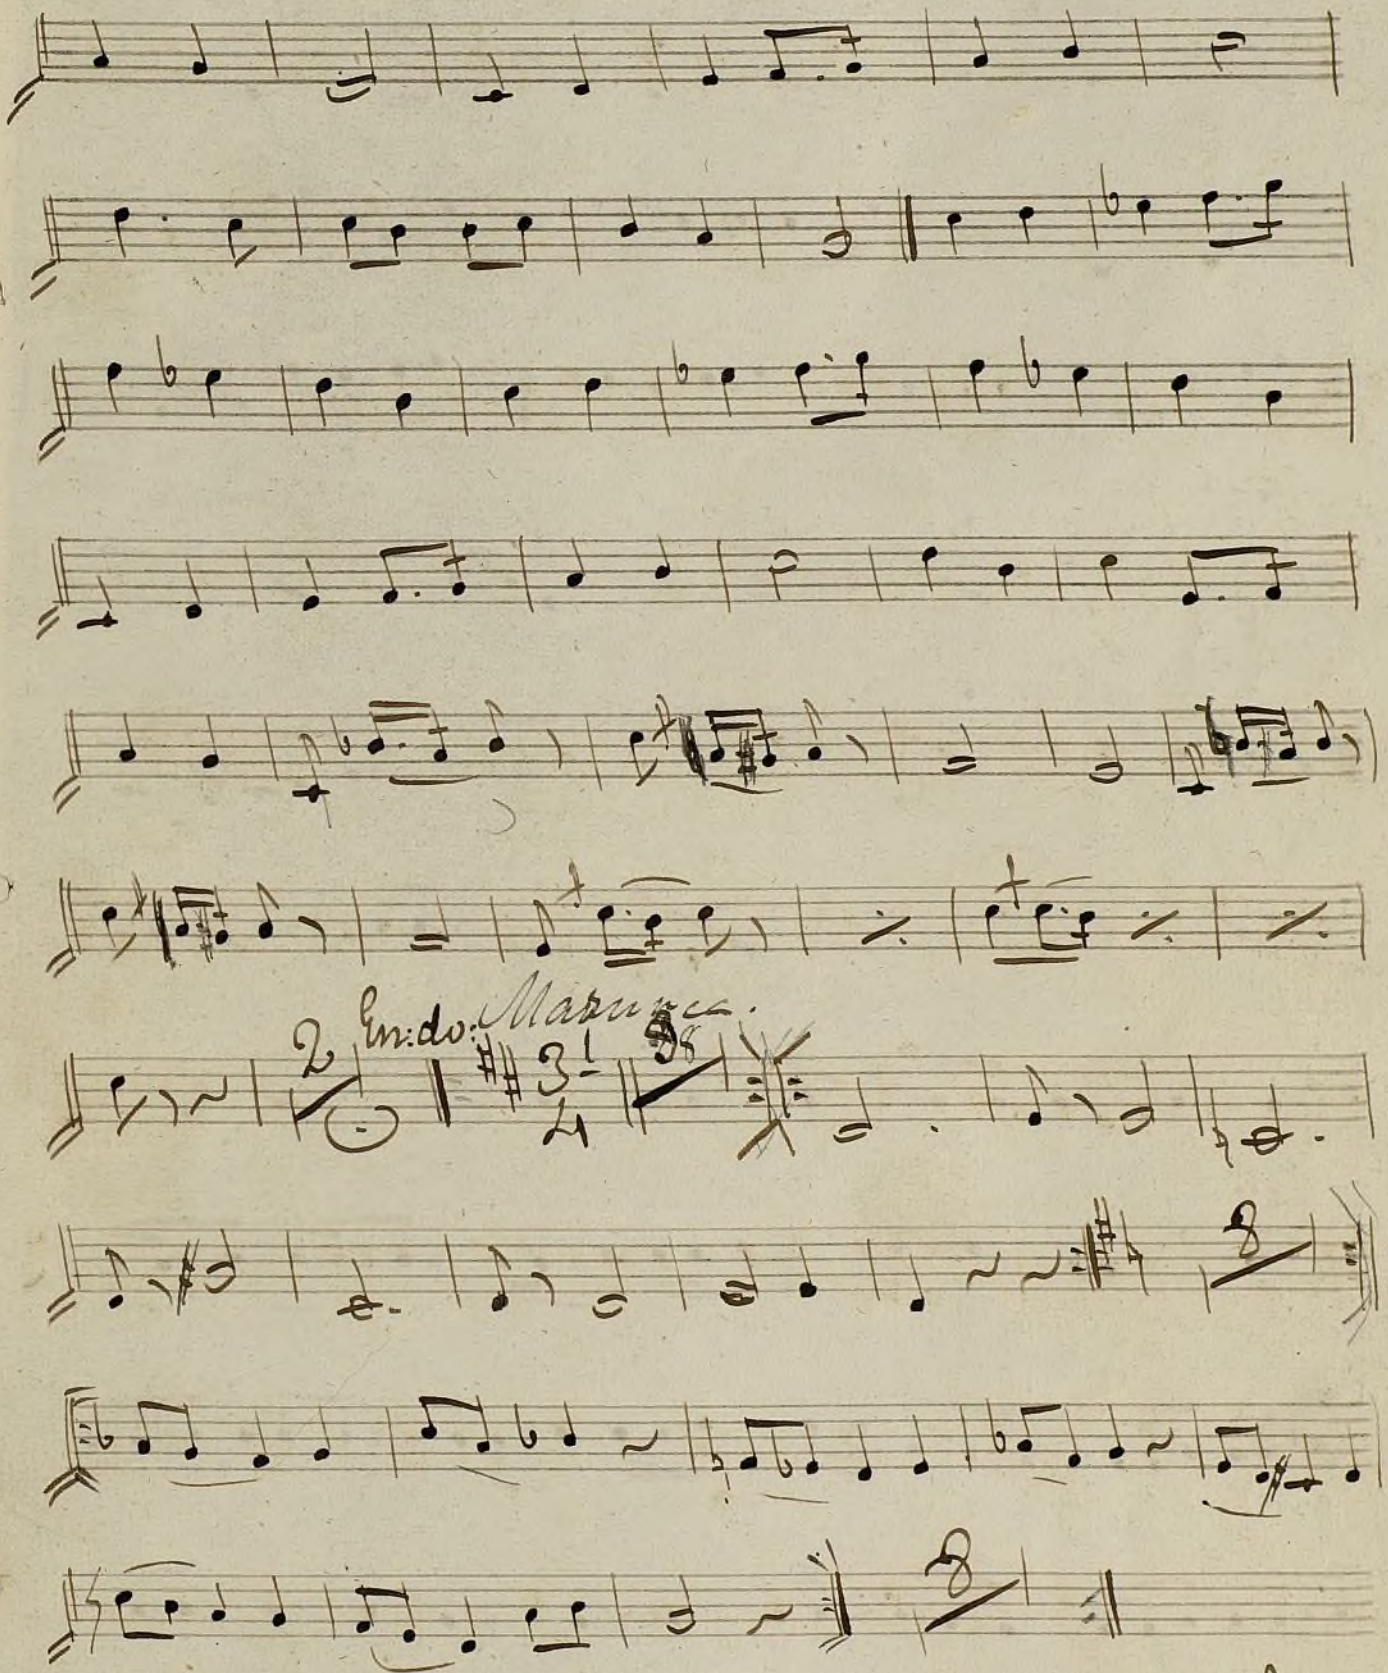 2 En:do: Mazurca. 8
3
4
8
8